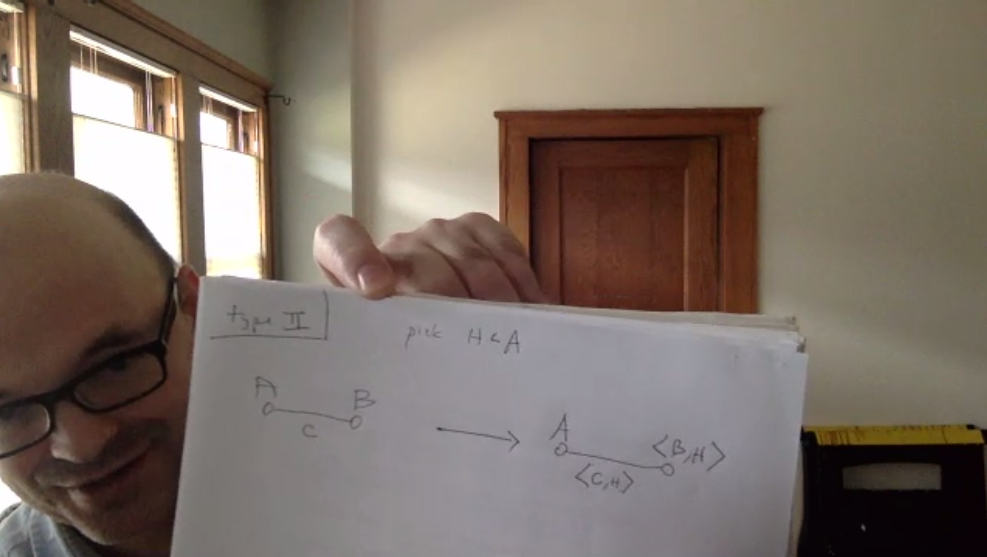 type II
pick H < A
A B
C
A <B,H>
<C,H>